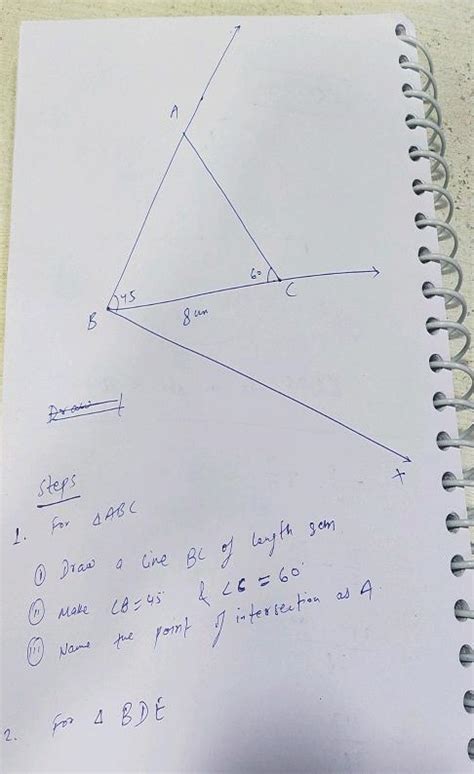 A
60
C
45
B
8 cm
Draw
X
Steps
1. For △ABC
(i) Draw a line BC of length 8cm
(ii) Make ∠B = 45° & ∠C = 60°
(iii) Name the point of intersection as A.
2. For △ BDE